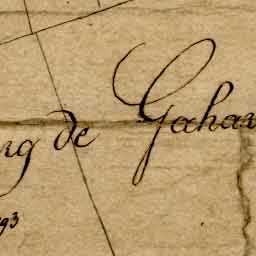 rg de Gahar
93